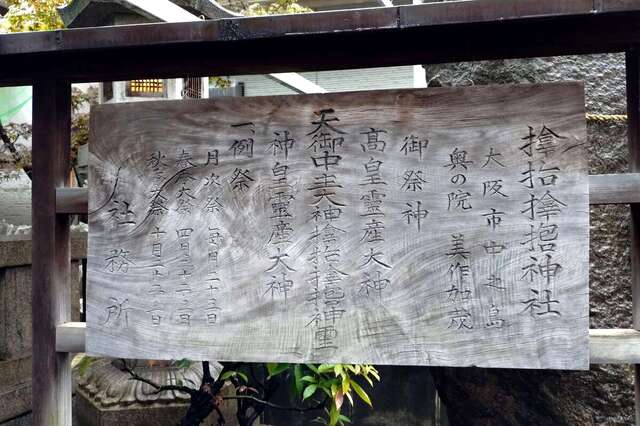 捨拾捨抱神社
大阪市中之島
奥の院 美作加茂
御祭神
高皇霊産大神
天御中主大神捨拾捨抱神霊
神皇霊産大神
一、例祭
月次祭 毎月二十三日
春季大祭 四月二十二、三日
秋季大祭 十月二十二、三日
社務所